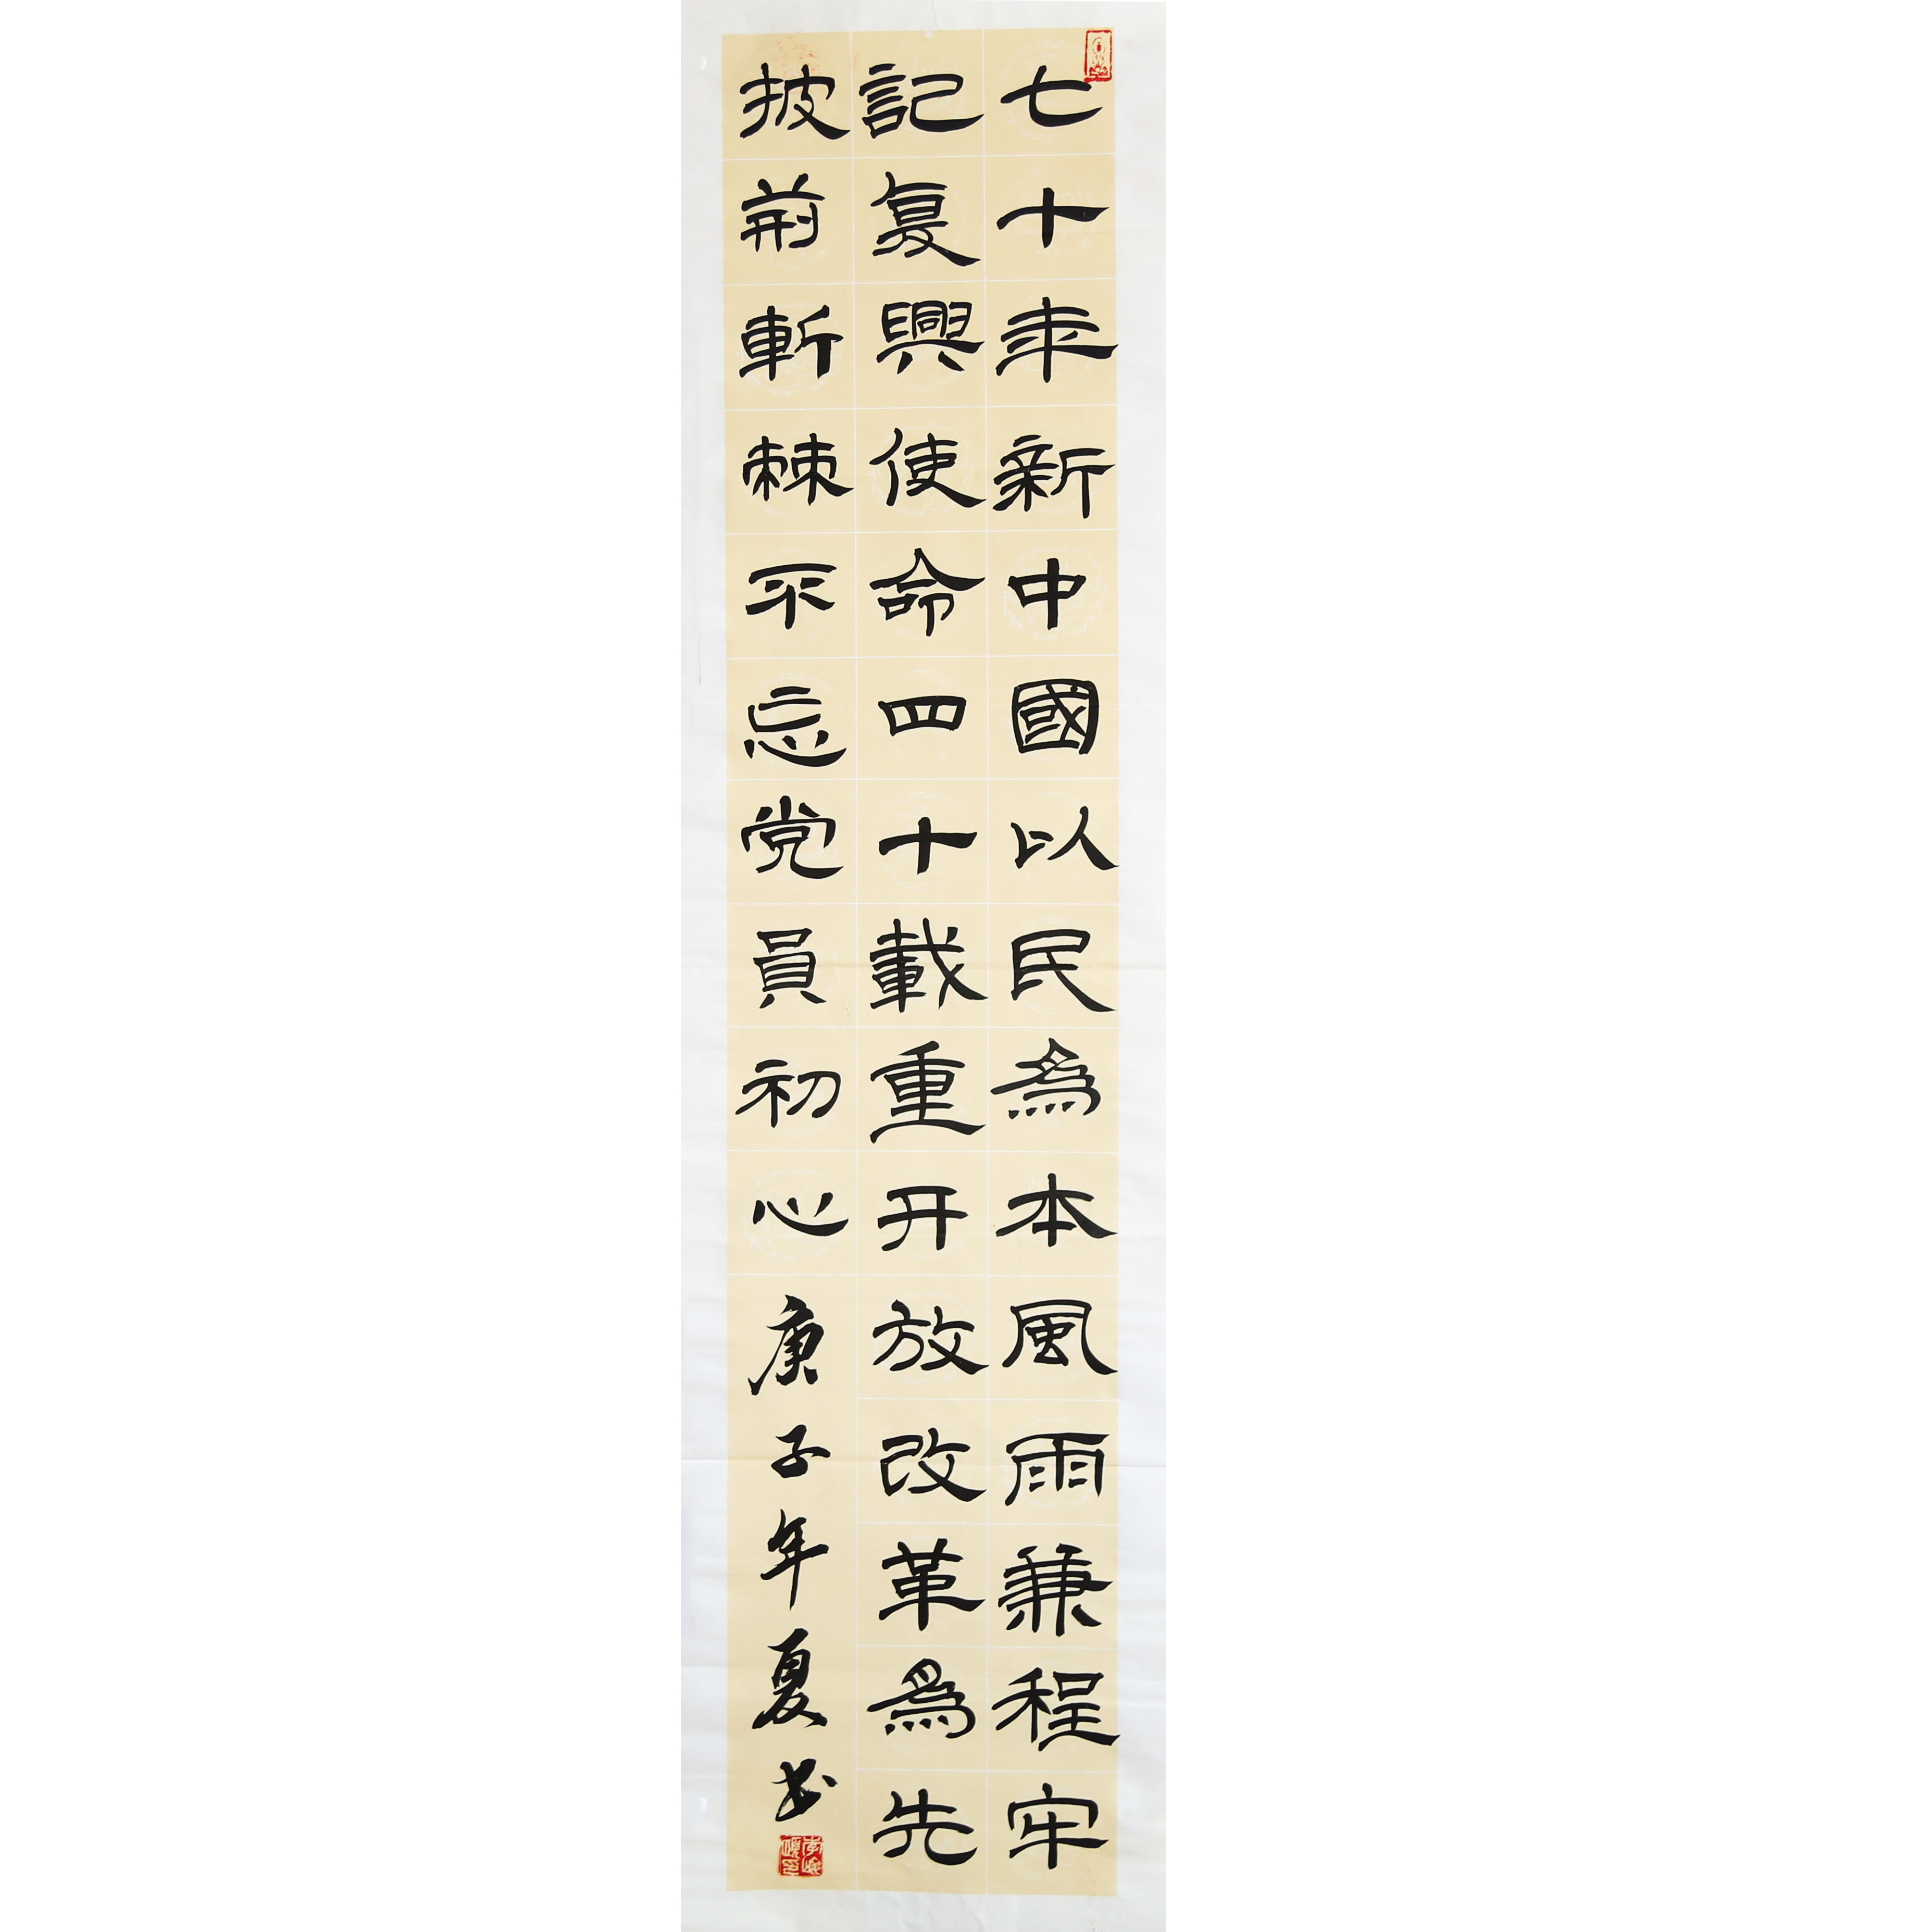 七十年新中國以民為本風雨兼程牢
記复興使命四十載重开放改革為先
披荊斬棘不忘党員初心庚子年夏书